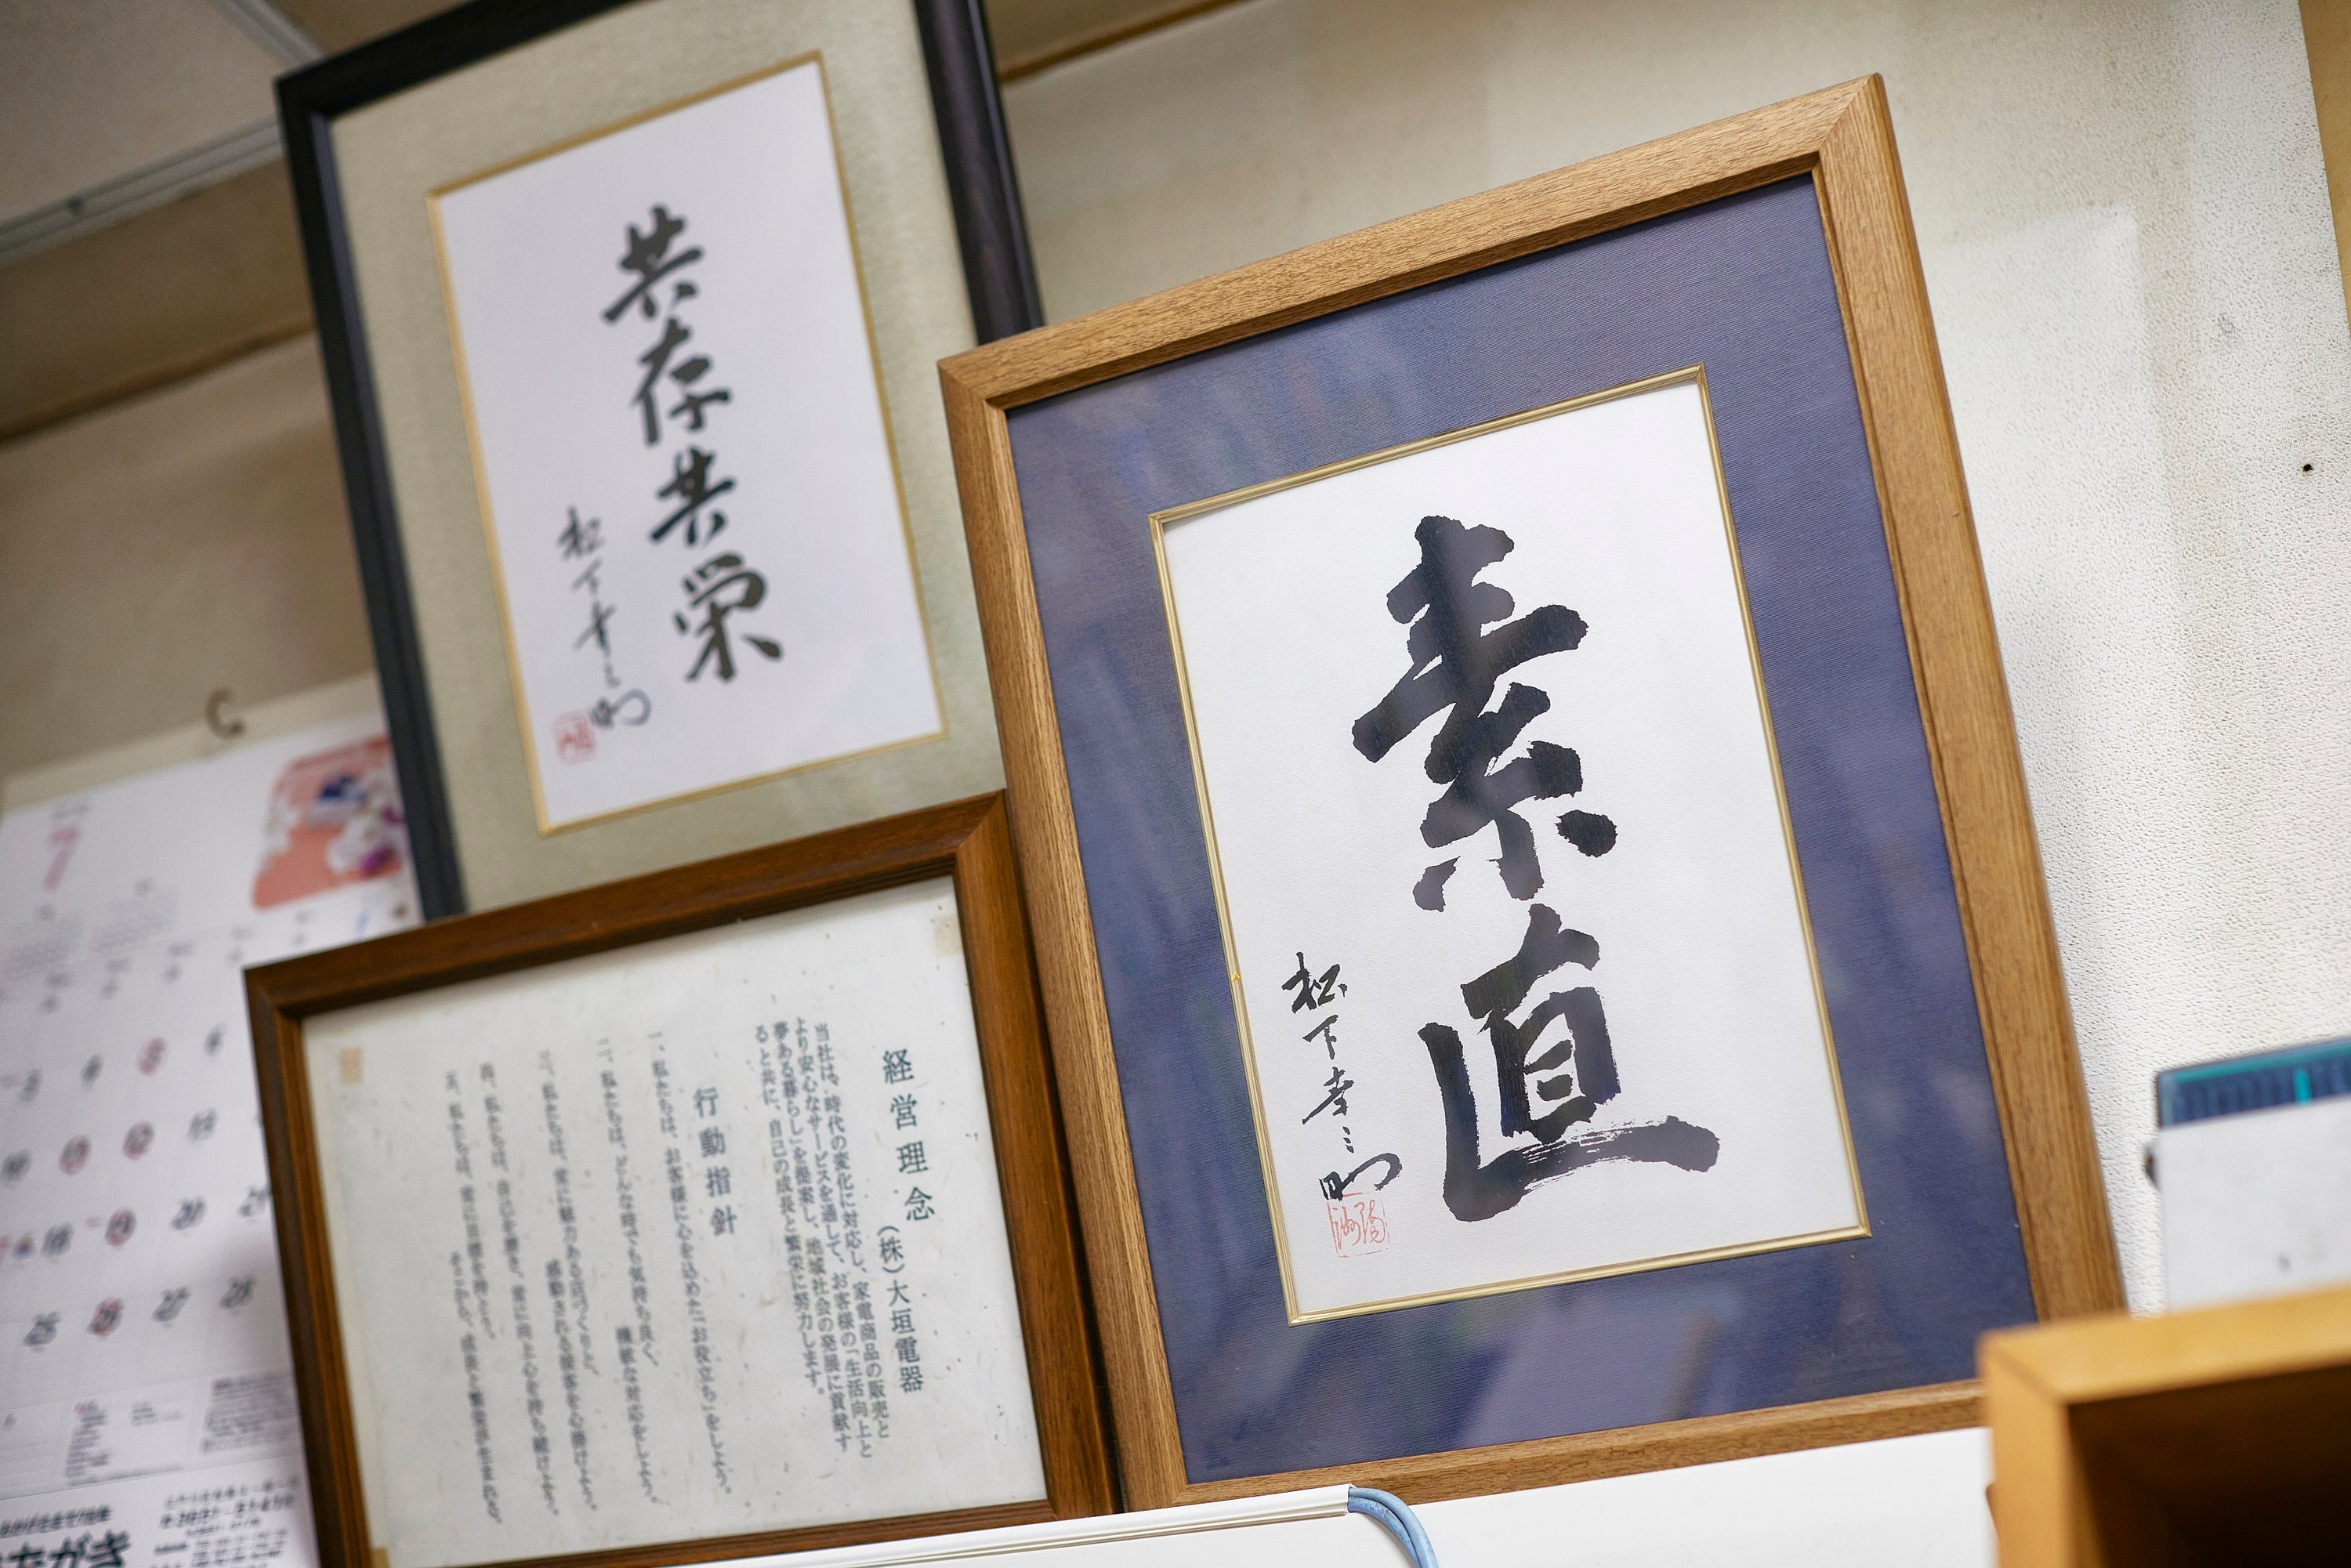 共存共栄
松下幸之助
素直
松下幸之助
経営理念
(株)大垣電器
当社は、時代の変化に対応し、家電商品の販売と
より安心なサービスを通して、お客様の「生活向上と
夢ある暮らし」を提案し、地域社会の発展に貢献す
ると共に、自己の成長と繁栄に努力します。
行動指針
一、私たちは、お客様に心を込めた「お役立ち」をします。
二、私たちは、どんな時でも気持ち良く、
機敏な対応をします。
三、私たちは、常に魅力ある店づくりと、
感動される接客を心掛けます。
四、私たちは、自己を磨き、常に向上心を持ち続けます。
五、私たちは、常に目標を持ち、
7
5
6
12
13
18
19
20
21
25
26
27
28